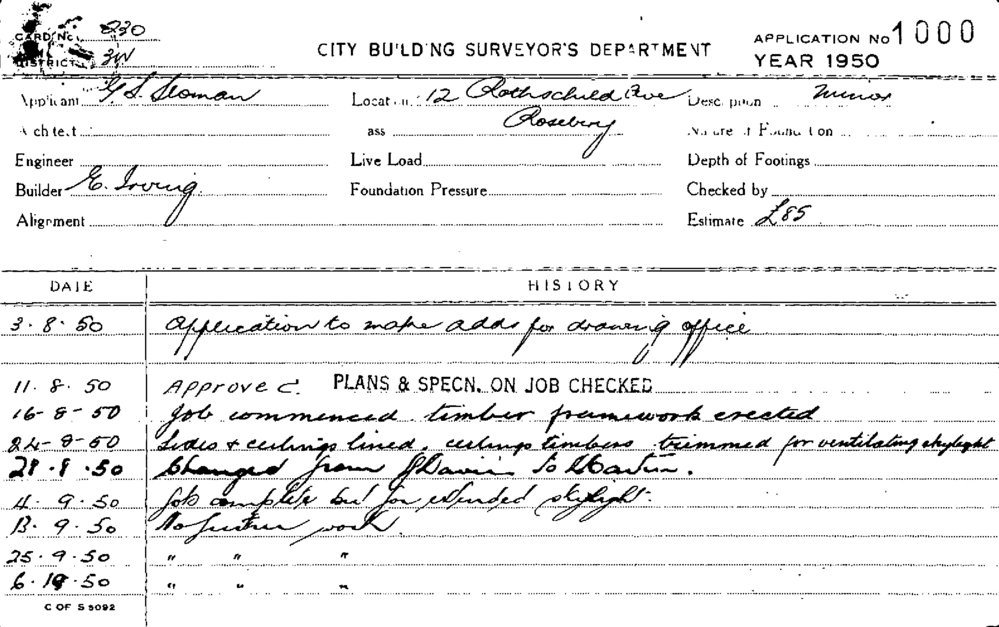 CARD No. 230
DISTRICT 3W
CITY BUILDING SURVEYOR'S DEPARTMENT
APPLICATION No 1000
YEAR 1950
Applicant G. S. Sloman Location 12 Rothschild Ave Description Minor
Architect Class Rosebery Nature of Foundation
Engineer Live Load Depth of Footings
Builder E. Irving Foundation Pressure Checked by
Alignment Estimate £85
DATE HISTORY
3.8.50 Application to make adds for drawing office
11.8.50 Approved PLANS & SPECN. ON JOB CHECKED
16-8-50 Job commenced timber framework erected
24-8-50 Sides + ceilings lined, ceilings timbers trimmed for ventilating skylight
28.8.50 Changed from to Martin.
4.9.50 Job complete but for extended skylight.
13.9.50 No further work.
25.9.50 " " "
6.10.50 " " "
C OF S 5092